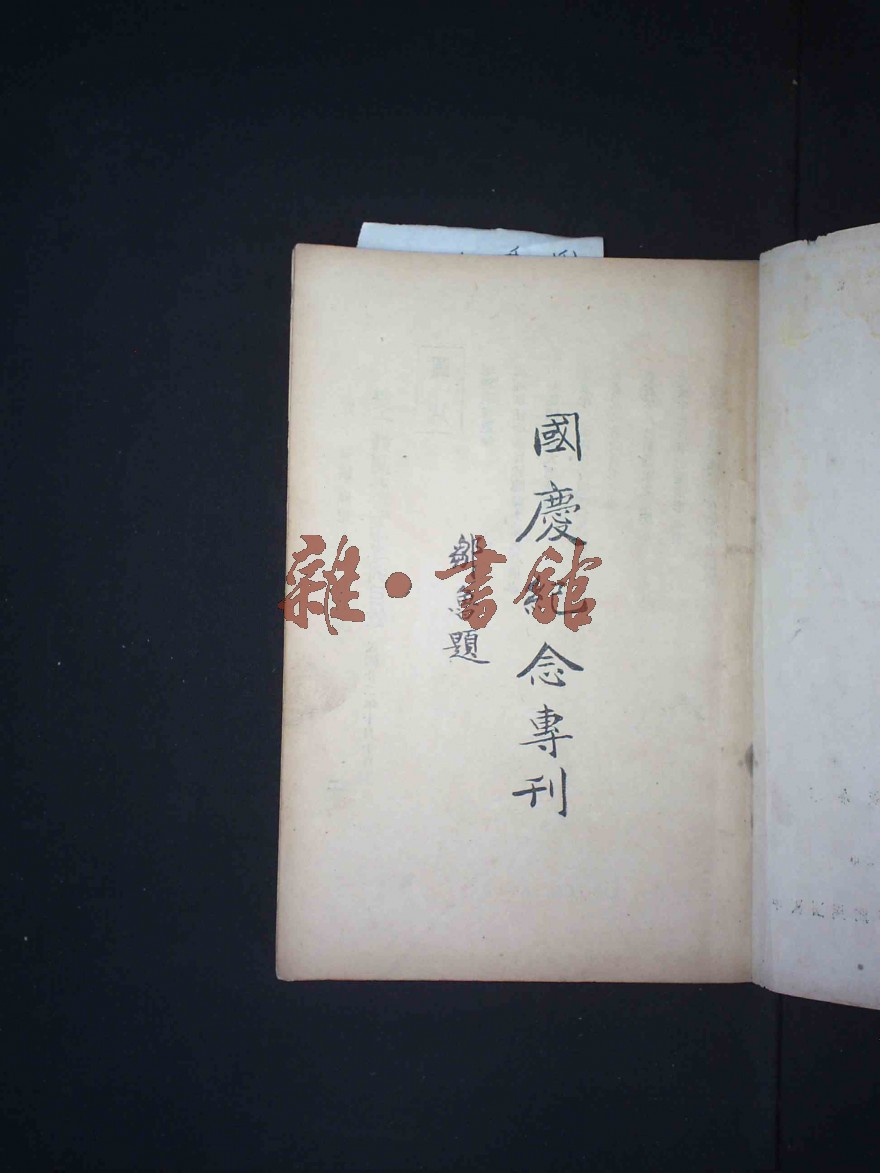 國慶紀念專刊
鄒魯題
雜·書館